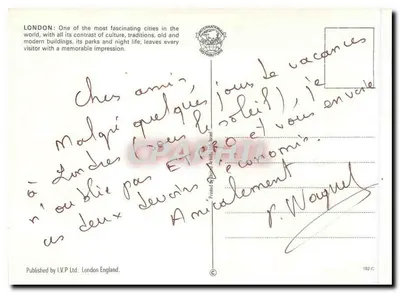 LONDON: One of the most fascinating cities in the
world, with all its contrast of culture, traditions, old and
modern buildings, its parks and night life, leaves every
visitor with a memorable impression.
Chers amis,
Malgré quelques jours de vacances
à Londres (sous le soleil), je
n'oublie pas EXPRO et vous envoie
ces deux devoirs d'économie.
Amicalement
P. Waquet
Published by I.V.P Ltd. London England.
©